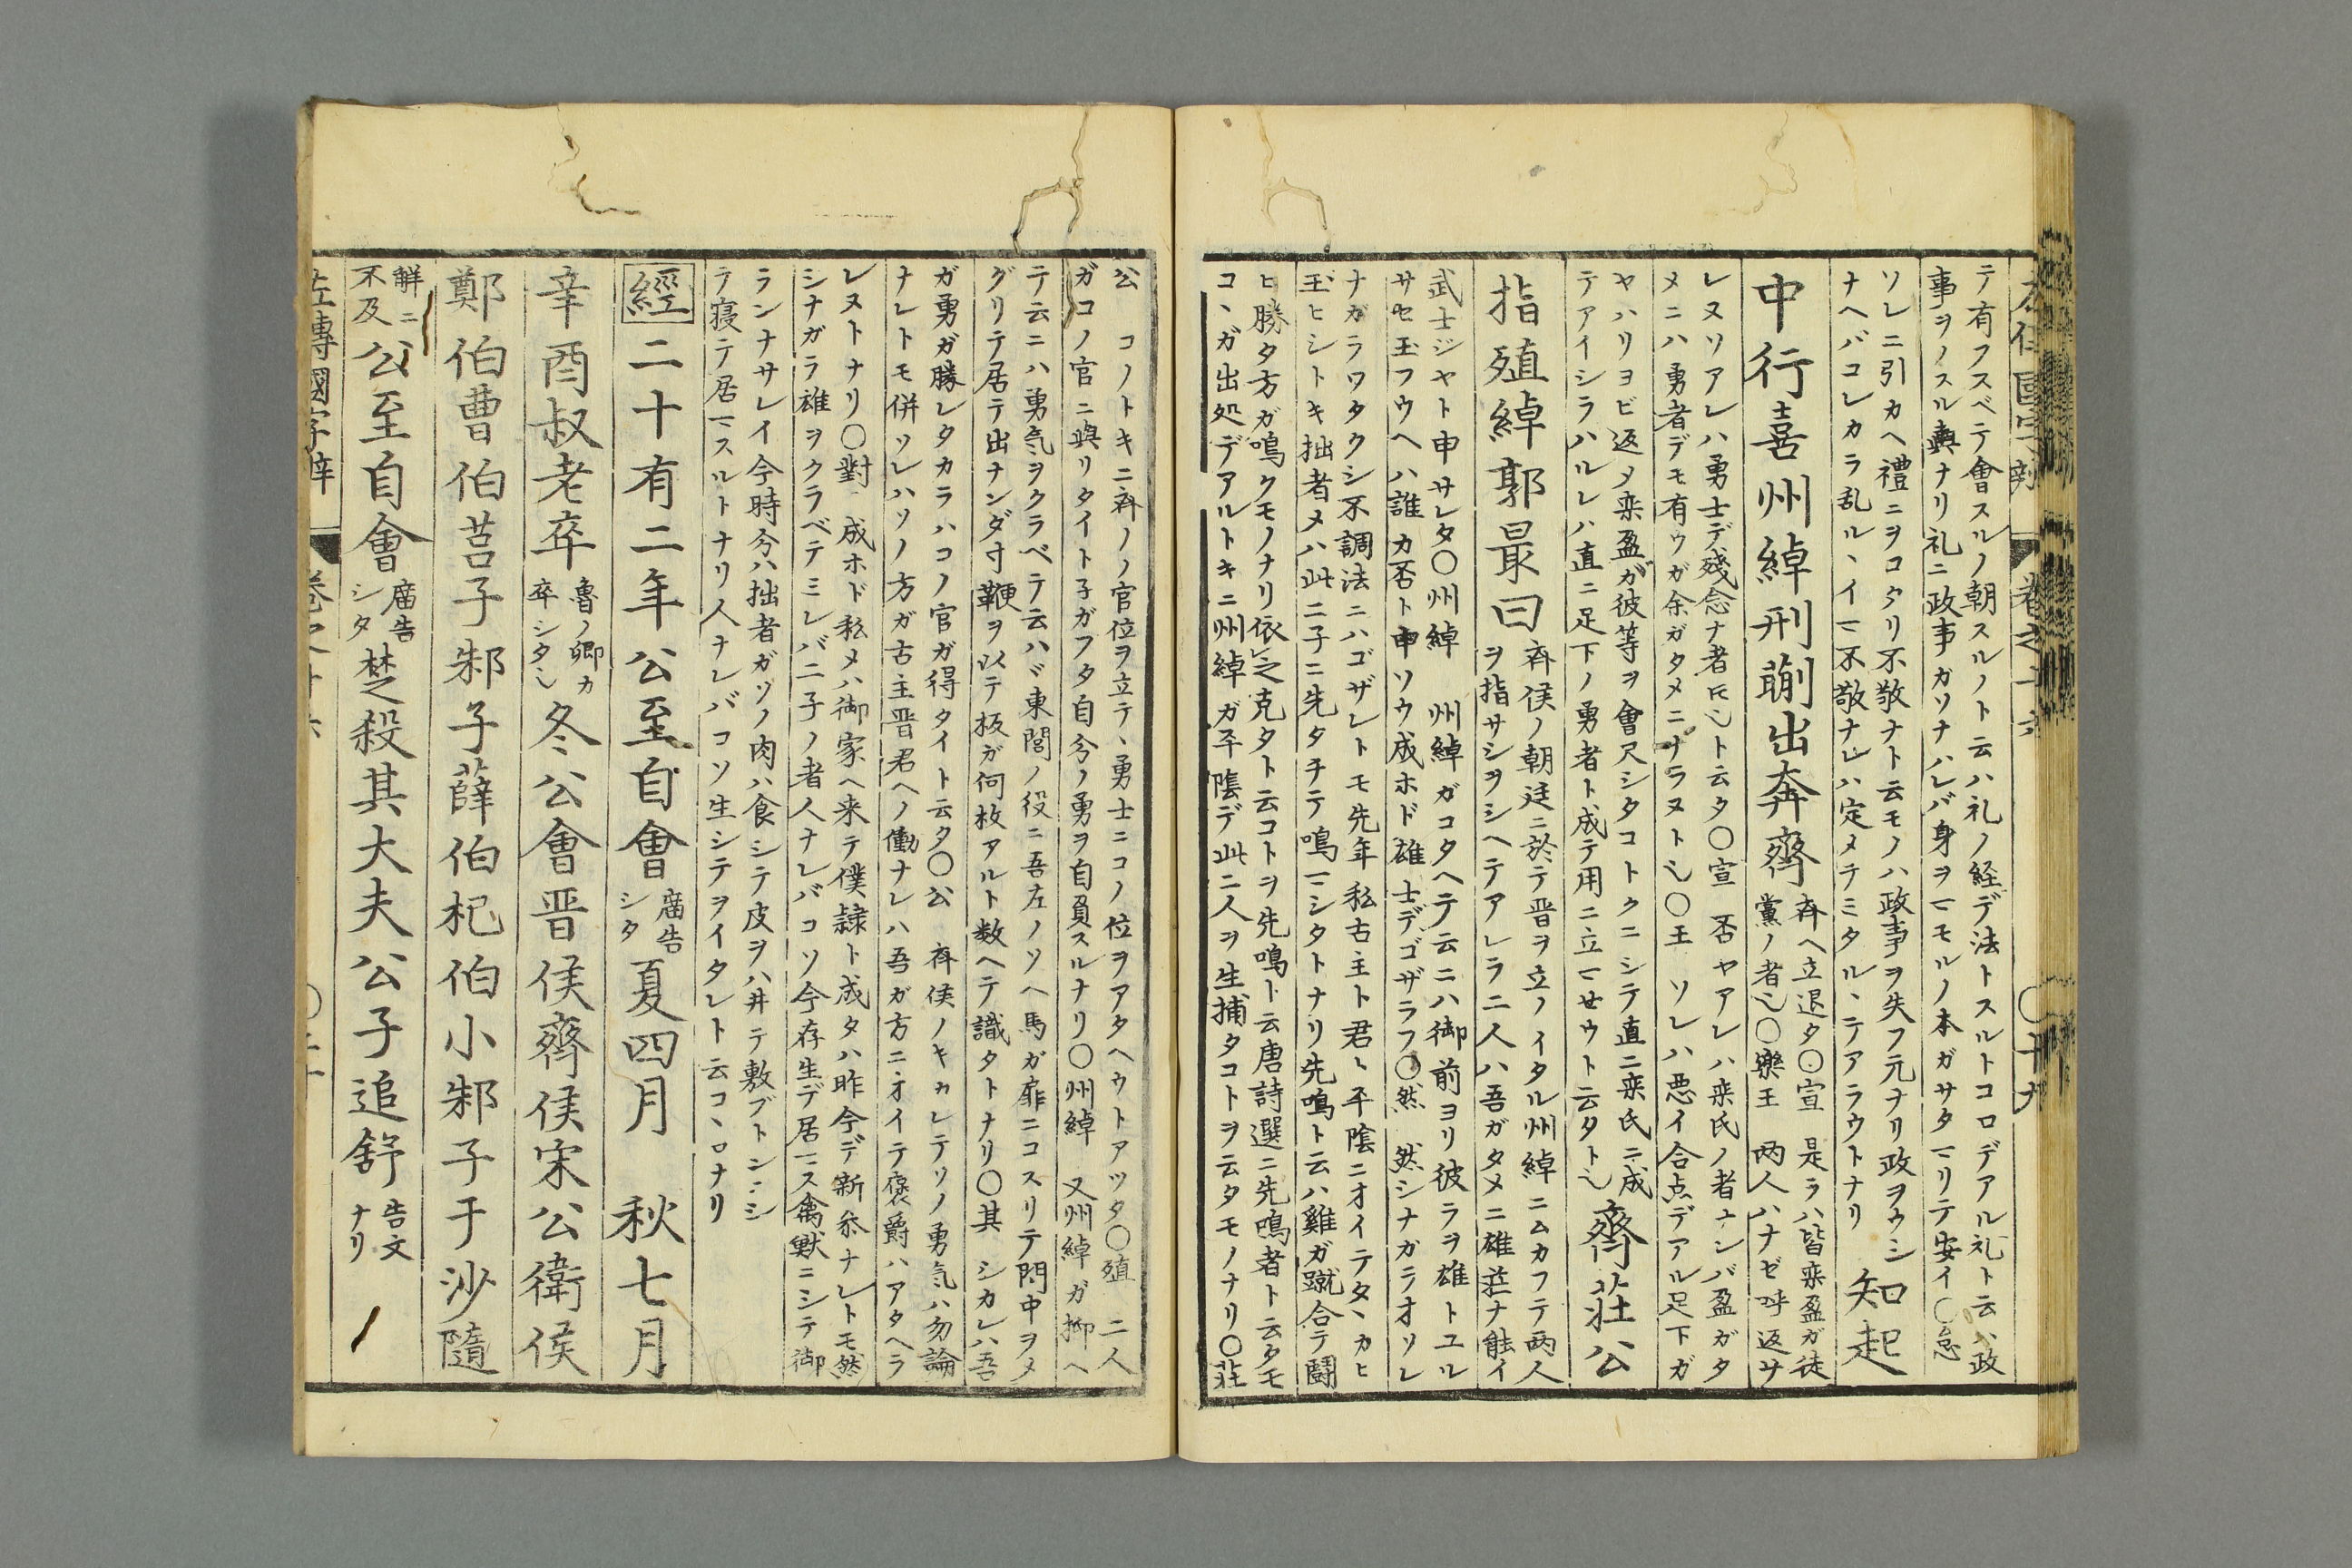 テ有フスベテ會スルノ朝スルノト云ハ礼ノ経デ法トスルトコロデアル礼ト云ハ政
事ヲノスル輿ナリ礼ニ政事ガソナハレバ身ヲ𪜈モルノ本ガサタ𪜈リテ安イ〇怠
ソレニ引カヘ禮ニヲコタリ不敬ナト云モノハ政事ヲ失フ元ナリ政ヲウシ
ナヘバコレカラ乱ルヽイ𪜈不敬ナレハ定メテミタルヽテアラウトナリ
知起
中行喜州綽刑蒯出奔齊
斉ヘ立退タ〇宣 是ラハ皆栾盈ガ徒
黨ノ者也〇樂王 両人ハナゼ呼返サ
レヌソアレハ勇士デ殘念ナ者𪜈也ト云タ〇宣 否ヤアレハ栾氏ノ者ナンバ盈ガタ
メニハ勇者デモ有ウガ余ガタメニナラヌト也〇王 ソレハ悪イ合点デアル足下ガ
ヤハリヨビ返メ栾盈ガ彼等ヲ會尺シタコトクニシテ直ニ栾氏ニ成
テアイシラハルレハ直ニ足下ノ勇者ト成テ用ニ立𪜈せウト云タト也
齊莊公
指殖綽郭最曰
斉侯ノ朝廷ニ於テ晋ヲ立ノイタル州綽ニムカフテ両人
ヲ指サシヲシヘテアレラ二人ハ吾ガタメニ雄荘ナ能イ
武士ジヤト申サレタ〇州綽 州綽ガコタヘテ云ニハ御前ヨリ彼ラヲ雄トユル
サセ玉フウヘハ誰カ否ト申ソウ成ホド雄士デゴザラフ〇然 然シナガラオソレ
ナガラワタクシ不調法ニハゴザレトモ先年私古主ト君ヽ平陰ニオイテタヽカヒ
玉ヒシトキ拙者メハ此二子ニ先タチテ鳴𪜈シタトナリ先鳴ト云ハ雞ガ蹴合テ鬪
ヒ勝タ方ガ鳴クモノナリ依之克タト云コトヲ先鳴ト云唐詩選ニ先鳴者ト云タモ
コヽガ出処デアルトキニ州綽ガ平陰デ此二人ヲ生捕タコトヲ云タモノナリ〇莊
公 コノトキニ斉ノノ官位ヲ立テヽ勇士ニコノ位ヲアタヘウトアツタ〇殖 二人
ガコノ官ニ與リタイト子ガフタ自分ノ勇ヲ自負スルナリ〇州綽 又州綽ガ抑ヘ
テ云ニハ勇気ヲクラベテ云ハヾ東閭ノ役ニ吾左ノソヘ馬ガ扉ニコスリテ門中ヲメ
グリテ居テ出ナンダ寸鞭ヲ以テ扳ガ何枚アルト数ヘテ識タトナリ〇其 シカレハ吾
ガ勇ガ勝レタカラハコノ官ガ得タイト云タ〇公 斉侯ノキカレテソノ勇気ハ勿論
ナレトモ併ソレハソノ方ガ古主晋君ヘノ働ナレハ吾ガ方ニオイテ褒爵ハアタヘラ
レヌトナリ〇對 成ホド私メハ御家ヘ来テ僕隷ト成タハ昨今デ新参ナレトモ然
シナガラ雄ヲクラベテミレバ二子ノ者人ナレバコソ今存生デ居𪜈ス禽獣ニシテ御
ランナサレイ今時分ハ拙者ガソノ肉ハ食シテ皮ヲハ丼テ敷ブトンニシ
テ寝テ居𪜈スルトナリ人ナレバコソ生シテヲイタレト云コヽロナリ
經二十有二年公至自會
廣告
シタ
夏四月 秋七月
辛酉叔老卒
魯ノ卿カ
卒シタ也
冬公會晋侯齊侯宋公衛侯
鄭伯曹伯莒子邾子薛伯杞伯小邾子于沙隨
解ニ
不及
公至自會
廣告
シタ
楚殺其大夫公子追舒
告文
ナリ
左傳國字辯